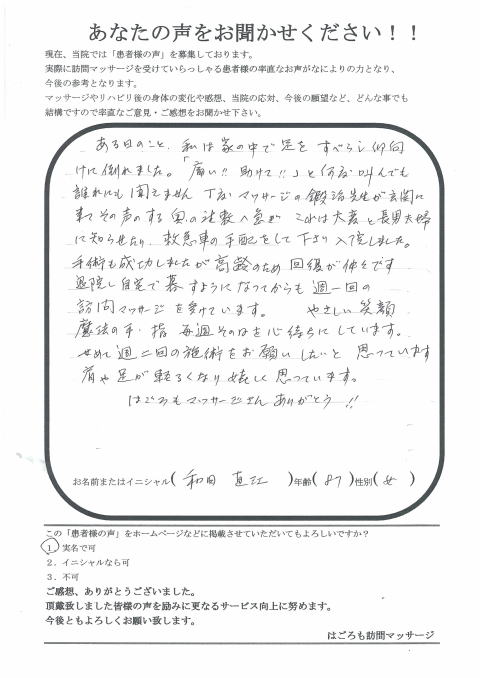 あなたの声をお聞かせください！！
現在、当院では「患者様の声」を募集しております。
実際に訪問マッサージを受けていらっしゃる患者様の率直なお声がなによりの力となり、
今後の参考となります。
マッサージやリハビリ後の身体の変化や感想、当院の応対、今後の願望など、どんな事でも
結構ですので率直なご意見・ご感想をお聞かせ下さい。
ある日のこと、私は家の中で足をすべらし仰向
けに倒れました。「痛い!! 助けて!!」と何度叫んでも
誰れにも聞こえません 丁度マッサージの鍛治先生が玄関に
来て その声のする奥の座敷へ急ぎ これは大変と長男夫婦
に知らせたり 救急車の手配をして下さり入院しました。
手術も成功しましたが高齢のため 回復が仲々です
退院し自宅で暮すようになってからも週一回の
訪問マッサージを受けています。 やさしい笑顔
魔法の手・指 毎週そのはを心待ちにしています。
せめて週二回の施術をお願いしたいと 思っています
肩や足が軽くなり嬉しく思っています。
はごろもマッサージさん ありがとう!!
お名前またはイニシャル( 和田 直江 )年齢( 87 )性別( 女 )
この「患者様の声」をホームページなどに掲載させていただいてもよろしいですか？
１．実名で可
２．イニシャルなら可
３．不可
ご感想、ありがとうございました。
頂戴致しました皆様の声を励みに更なるサービス向上に努めます。
今後ともよろしくお願い致します。
はごろも訪問マッサージ